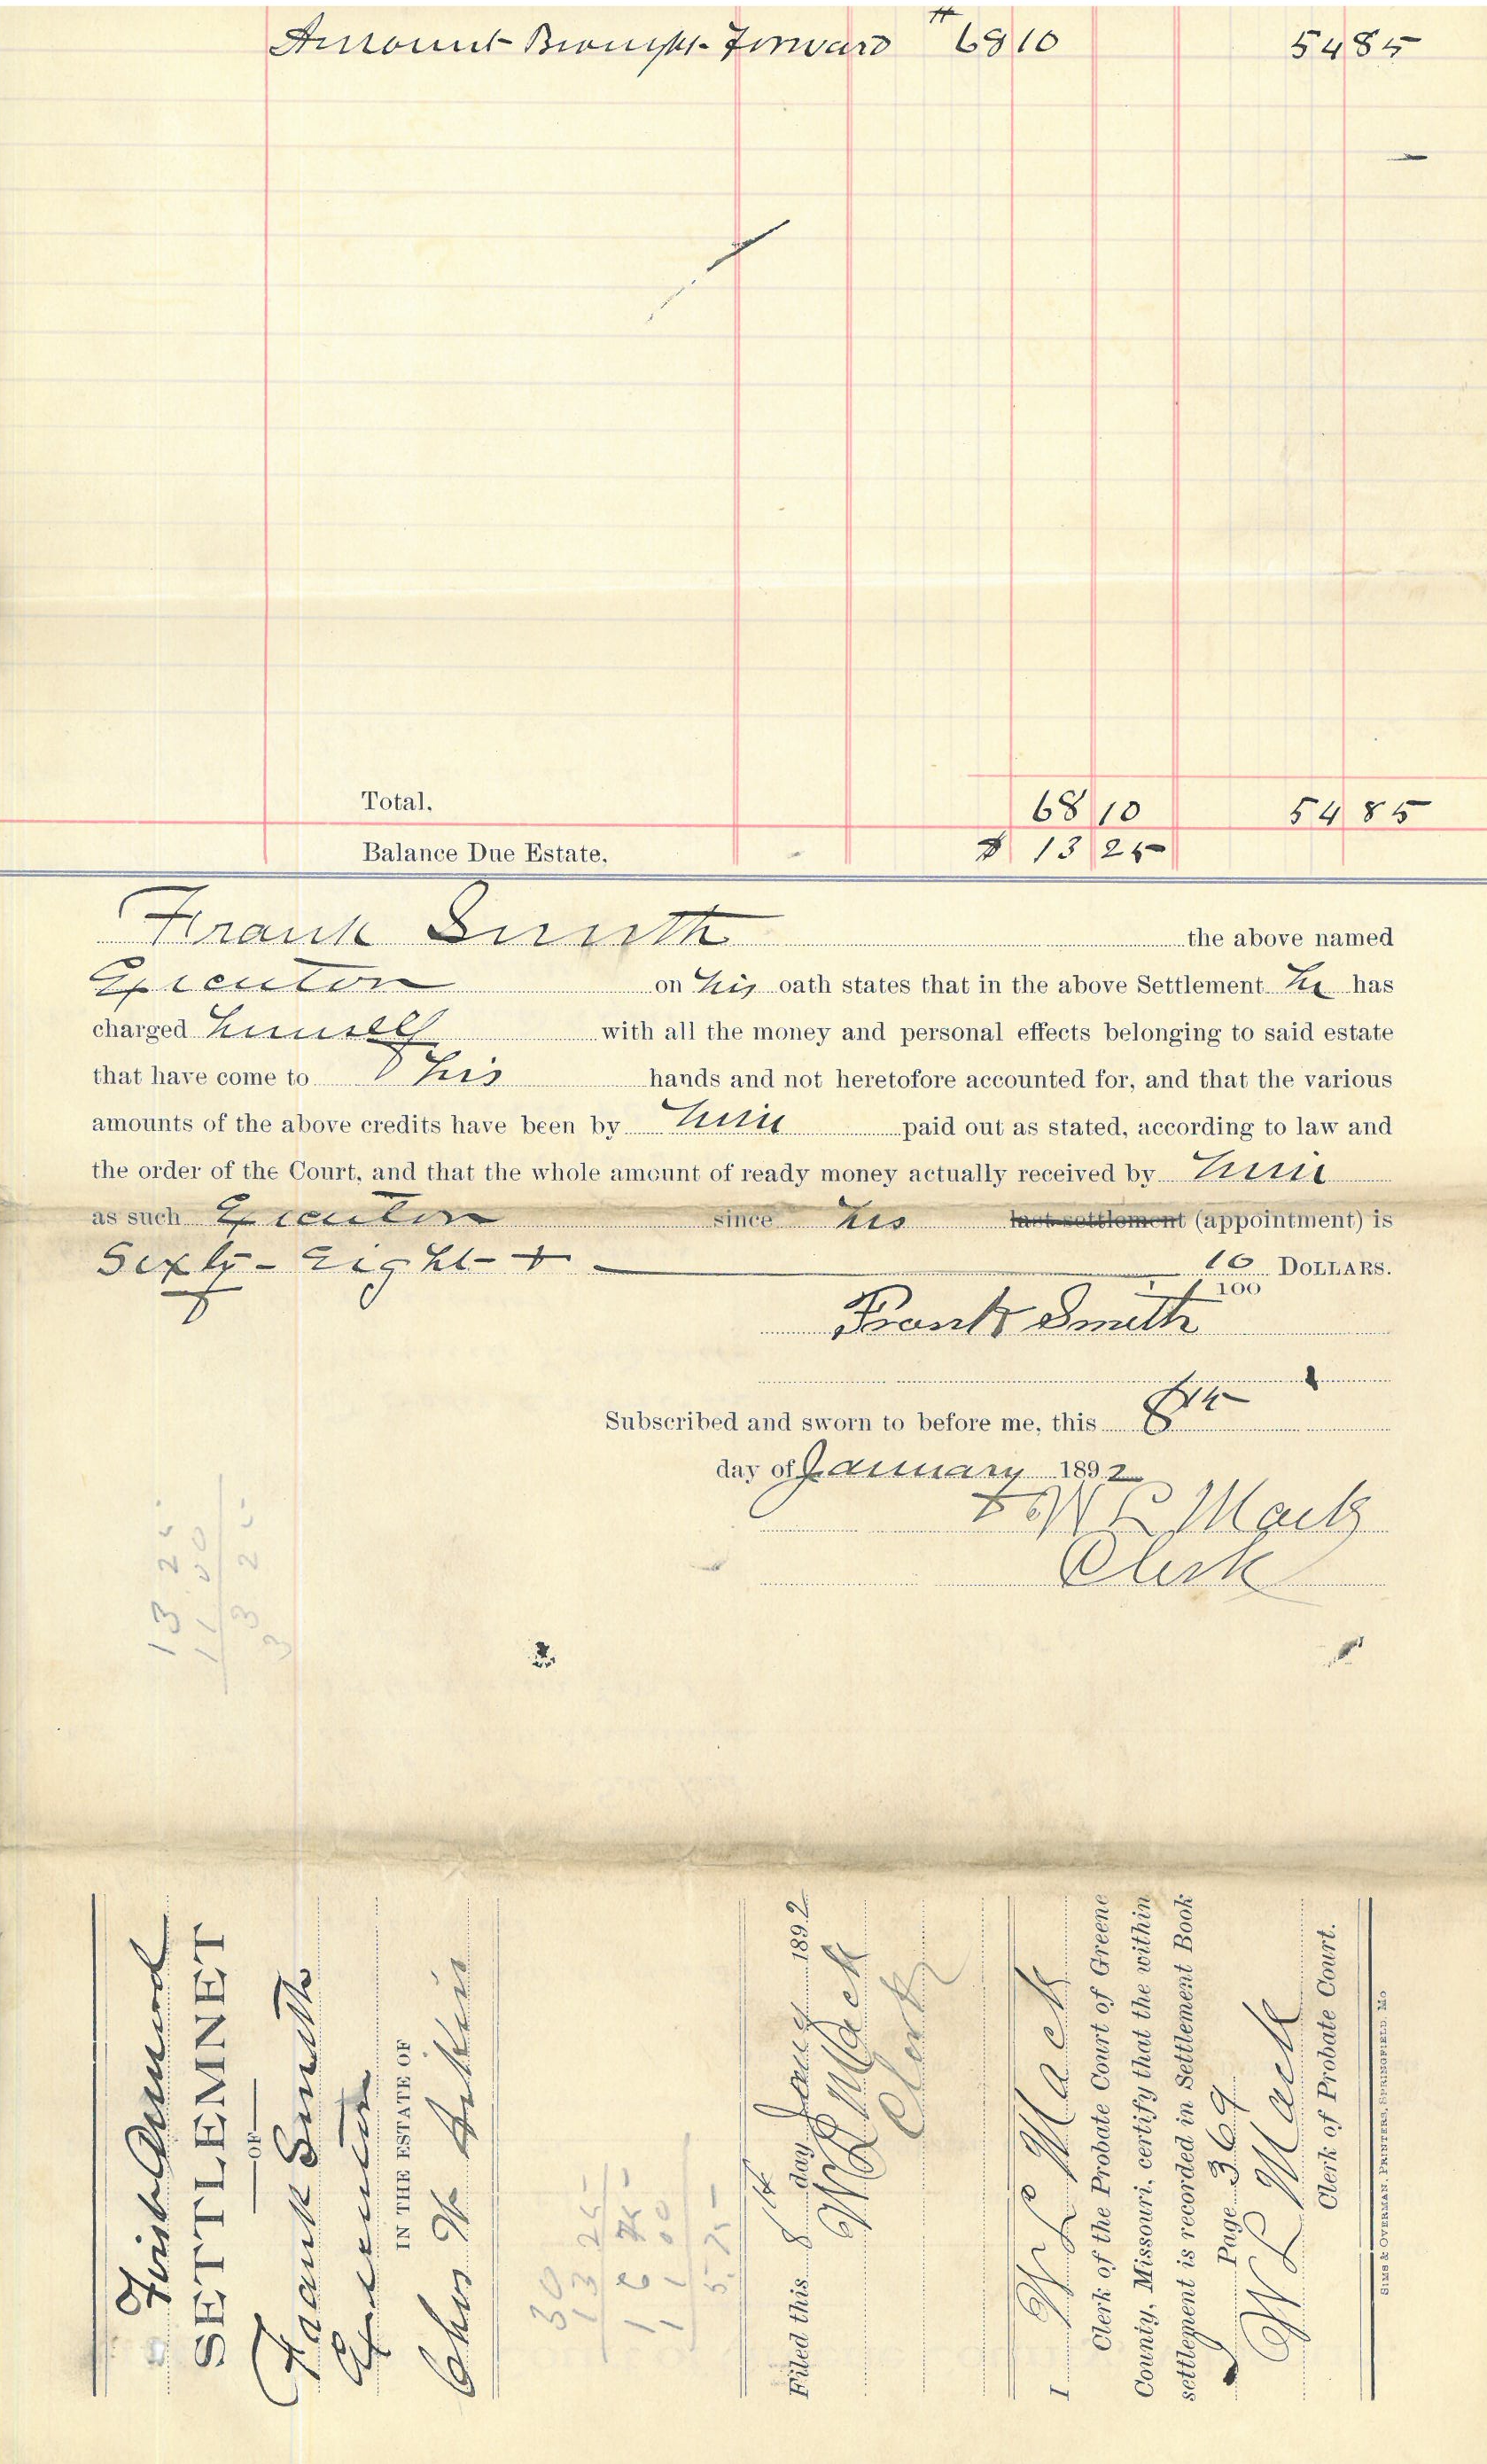 Amount Brought Forward $ 68 10 54 85
Total. 68 10 54 85
Balance Due Estate. $ 13 25
Frank Smith the above named
Executor on his oath states that in the above Settlement he has
charged himself with all the money and personal effects belonging to said estate
that have come to his hands and not heretofore accounted for, and that the various
amounts of the above credits have been by him paid out as stated, according to law and
the order of the Court, and that the whole amount of ready money actually received by him
as such Executor since his last settlement (appointment) is
Sixty-Eight + 10 DOLLARS.
100
Frank Smith
Subscribed and sworn to before me, this 8th
day of January 1892
W L Mack
Clerk
13 25
11 00
3 25
3
First Annual
SETTLEMNET
OF
Frank Smith
Executor
IN THE ESTATE OF
Chas W
30
13 25
1 00
5.75
Filed this 8th day Jany 1892
W L Mack
Clerk
I W L Mack
Clerk of the Probate Court of Greene
County, Missouri, certify that the within
settlement is recorded in Settlement Book
Page 369
W L Mack
Clerk of Probate Court.
SIMS & OVERMAN, PRINTERS, SPRINGFIELD, MO